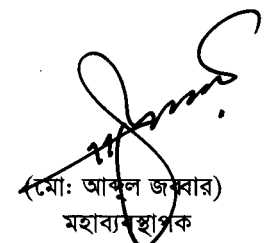 (মো: আব্দুল জব্বার)
মহাব্যবস্থাপক